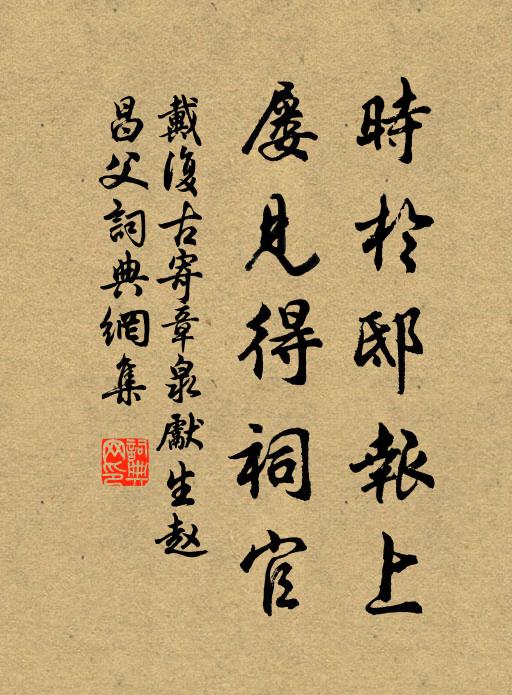 時於邸報上
屡見得祠官
戴復古寄章泉獻生赵
昌父詞典網集
詞典網印